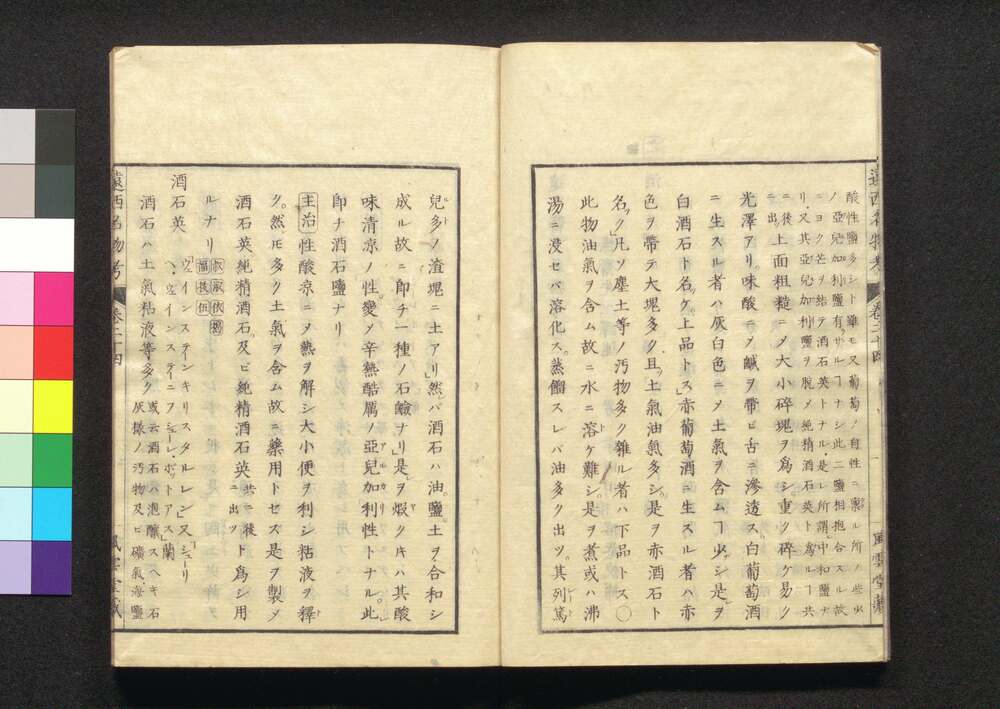 遠西名物考 卷二十四 風雲堂藏
酸性鹽多シト雖モ又葡萄ノ自性ニ稟ル所ノ些少
ノ亞兒加利鹽有サルヿナシ此二鹽相抱合スル故
ニヨク芒ヲ結テ酒石英トナル是レ所謂中和鹽ナ
リ又其亞兒加利鹽ヲ脫メ純精酒石英ト爲ルヿ共
ニ後ニ出ツ
上面粗糙ニメ大小碎塊ヲ爲シ重ク碎ケ易ク
光澤アリ味酸フメ鹹ヲ帶ヒ舌ニ滲透ス白葡萄酒
ニ生スル者ハ灰白色ニメ土氣ヲ含ムヿ少シ是ヲ
白酒石ト名ケ上品トス赤葡萄酒ニ生スル者ハ赤
色ヲ帶テ大塊多ク且土氣油氣多シ是ヲ赤酒石ト
名ク凡ソ塵土等ノ汚物多ク雜ル者ハ下品トス○
此物油氣ヲ含ム故ニ水ニ溶ケ難シ是ヲ煮或ハ沸
湯ニ浸セバ溶化ス蒸餾スレバ油多ク出ツ其列篤
兒多ノ渣塊ニ土アリ然バ酒石ハ油鹽土ヲ合和シ
成ル故ニ卽チ一種ノ石鹼ナリ是ヲ煆クキハ其酸
味淸凉ノ性變メ辛熱酷厲ノ亞兒加利性トナル此
卽チ酒石鹽ナリ
主治 性酸凉ニメ熱ヲ解シ大小便ヲ利シ粘液ヲ釋
ク然モ多ク土氣ヲ含ム故ニ藥用トセズ是ヲ製メ
酒石英純精酒石及ビ純精酒石英共ニ後ニ出ツト爲シ用
ルナリ
酒石英 ウェインステインキリスタルレン又シューリ
ヘ、ウェインステーニフシューレ、ポットアス 蘭
酒石ハ土氣粘液等多ク或云酒石ハ泡釀スヘキ石
灰樣ノ汚物及ヒ礦氣海鹽
遠西名物考 卷二十四 風雲堂藏